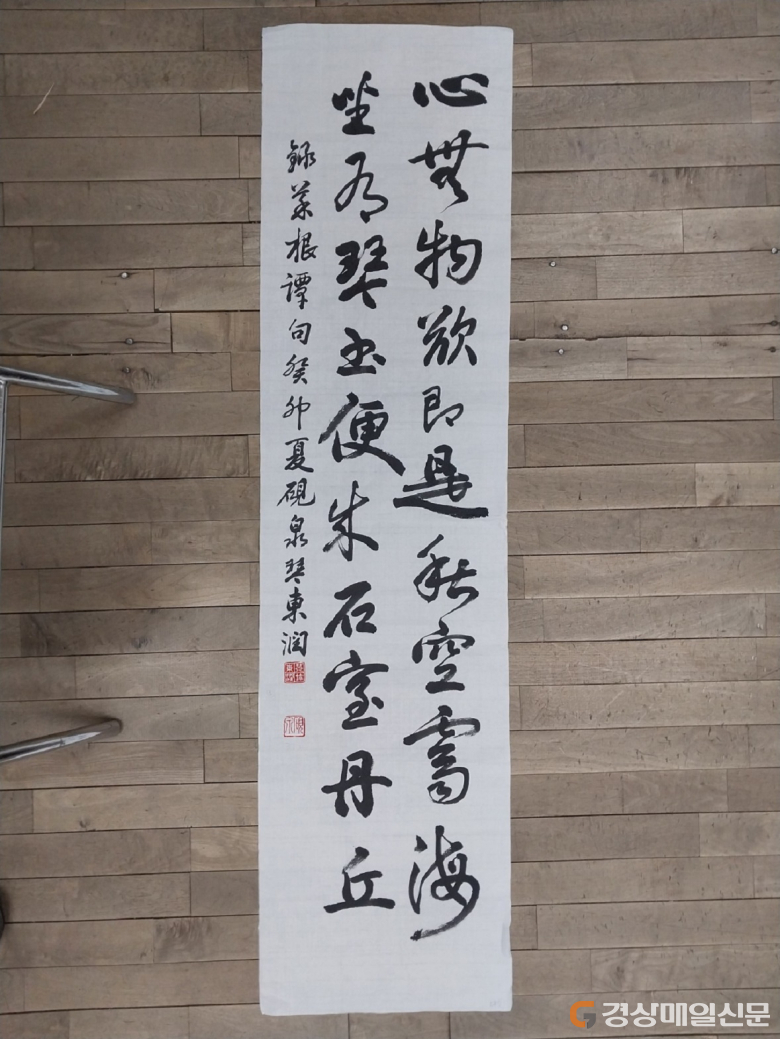 心無物欲即是秋空霽海
坐有琴书便成石室丹丘
錄菜根譚句癸卯夏硯泉琴東潤
경상매일신문